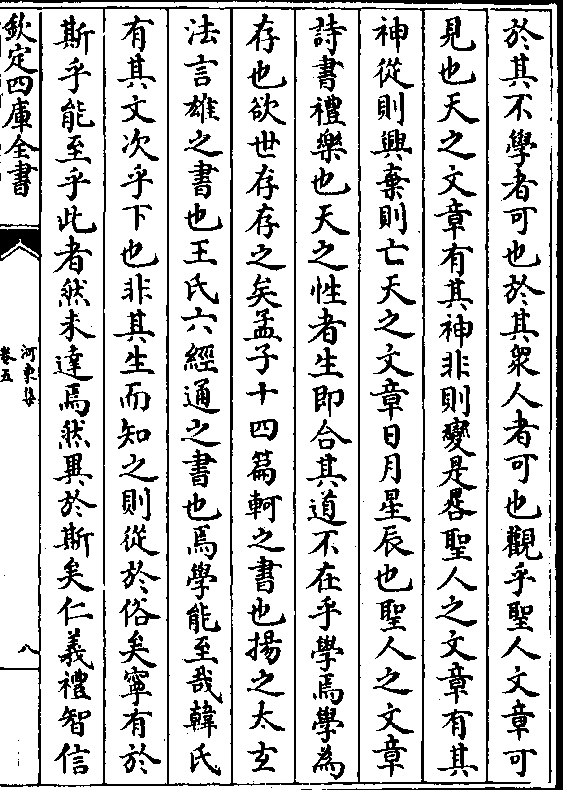 於其不學者可也於其衆人者可也觀乎聖人文章可
見也天之文章有其神非則變是晷聖人之文章有其
神從則興棄則亡天之文章日月星辰也聖人之文章
詩書禮樂也天之性者生即合其道不在乎學焉學為
存也欲世存存之矣孟子十四篇軻之書也揚之太玄
法言雄之書也王氏六經通之書也焉學能至哉韓氏
有其文次乎下也非其生而知之則從於俗矣寧有於
斯乎能至乎此者然未達焉然異於斯矣仁義禮智信
欽定四庫全書
河東集
卷五
八